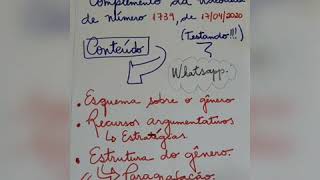 Complemento da videoaula
de número 1739, de 17/04/2020
(Testando!!!)
Conteúdo
Whatsapp.
• Esquema sobre o gênero
• Recursos argumentativos
↳ Estratégias.
• Estrutura do gênero.
↳ Paragrafação.